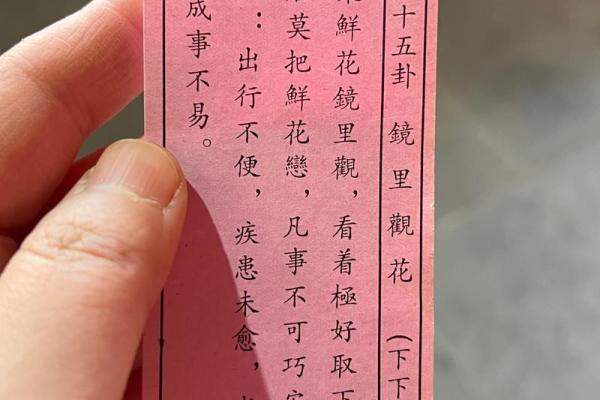 十五卦 鏡里觀花 (下下
鮮花鏡里觀，看着極好取下
莫把鮮花戀，凡事不可巧
：出行不便，疾患未愈，
成事不易。